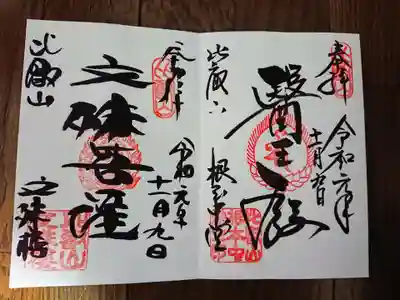 奉拝
令和元年
十一月九日
醫王殿
比叡山
根本中堂
奉拝
令和元年
十一月九日
文殊菩薩
比叡山
文殊楼